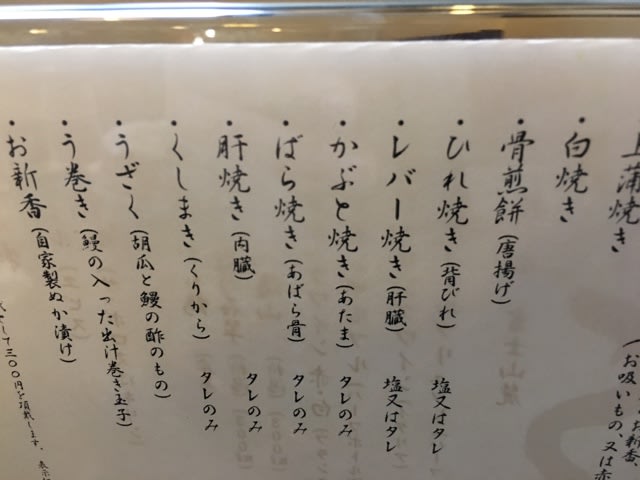 上蒲焼き
お新香、
(お吸いもの、又は赤
・白焼き
・骨煎餅(唐揚げ)
・ひれ焼き(背びれ) 塩又はタレ
・レバー焼き(肝臓) 塩又はタレ
・かぶと焼き(あたま) タレのみ
・ばら焼き(あばら骨) タレのみ
・肝焼き(内臓) タレのみ
・くしまき(くりから) タレのみ
・うざく(胡瓜と鰻の酢のもの)
・う巻き(鰻の入った出汁巻き玉子)
・お新香(自家製ぬか漬け)
して三〇〇円を頂戴します。